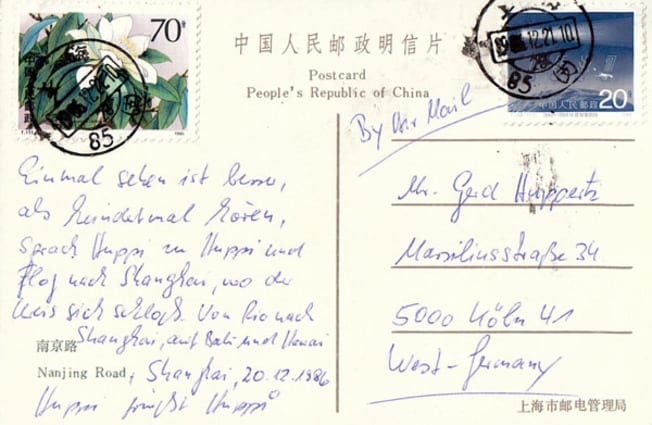 70分
中国人民邮政
中国人民邮政明信片
Postcard
People's Republic of China
中国人民邮政
20分
86.12.21.10
85
By Air Mail
Einmal sehen ist besser,
als hundertmal hören,
sprach Huppi zu Huppi und
flog nach Shanghai, wo der
Kreis sich schloß. Von Rio nach
Shanghai, auf Bali und Hawai
南京路
Nanjing Road, Shanghai, 20.12.1986
Huppi Huppi
Mr. Gerd Huppertz
Marsiliusstraße 34
5000 Köln 41
West-Germany
上海市邮电管理局